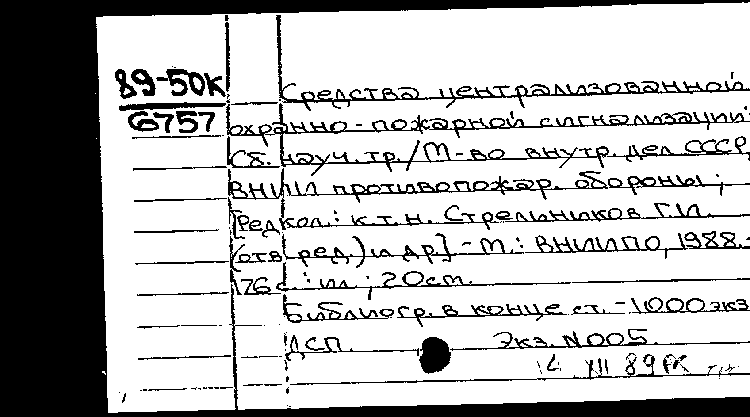 89-50К
6757
Средства централизованной
охранно-пожарной сигнализации:
Сб. науч. тр./М-во внутр. дел СССР,
ВНИИ противопожар. обороны;
[Редкол.: к.т.н. Стрельников Г.И.
(отв. ред.) и др.] - М.: ВНИИПО, 1988. -
176 с.: ил; 20см.
Библиогр. в конце ст. - 1000экз
ДСП. Экз. N005.
14 XII 89